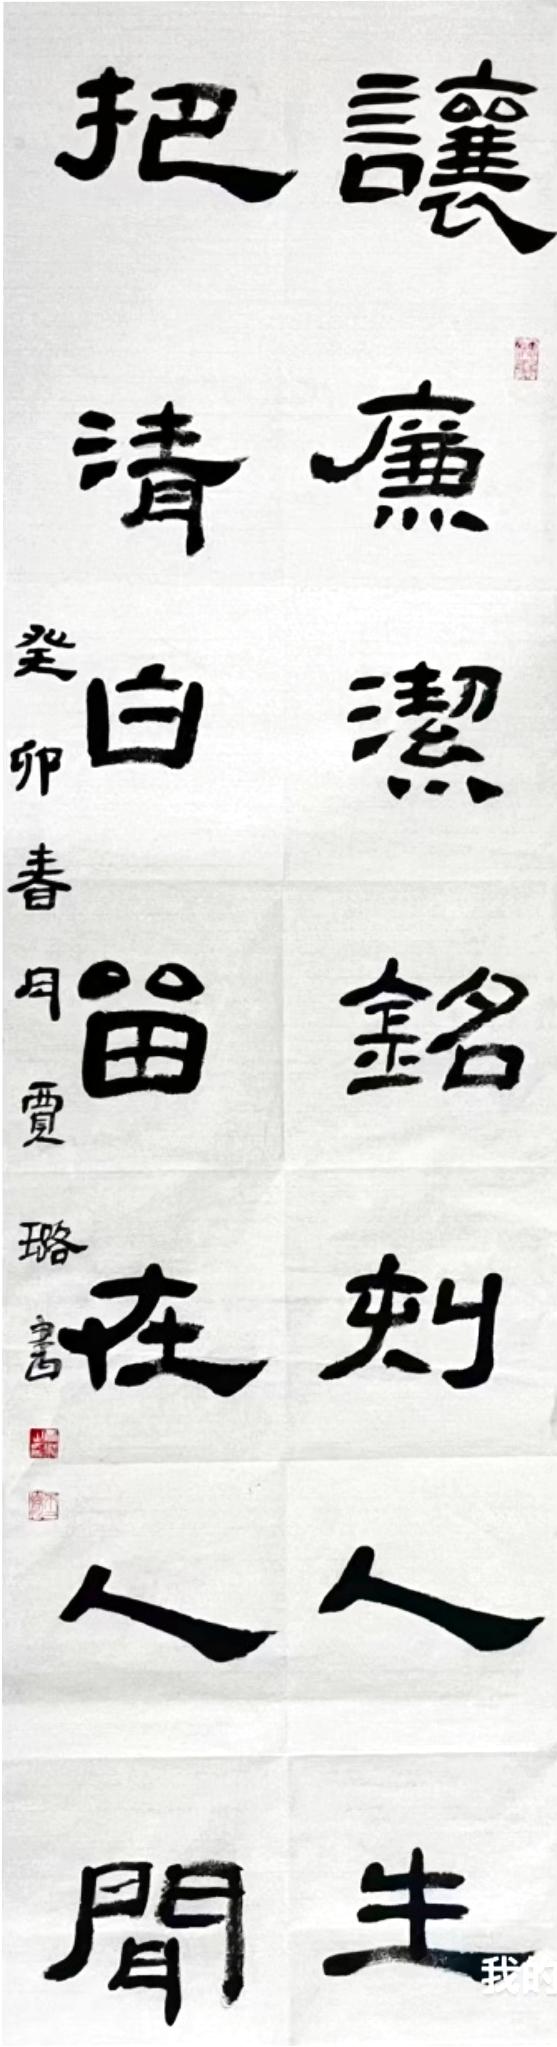 讓廉潔銘刻人生
把清白畱在人間
癸卯春月賈璐書
我的